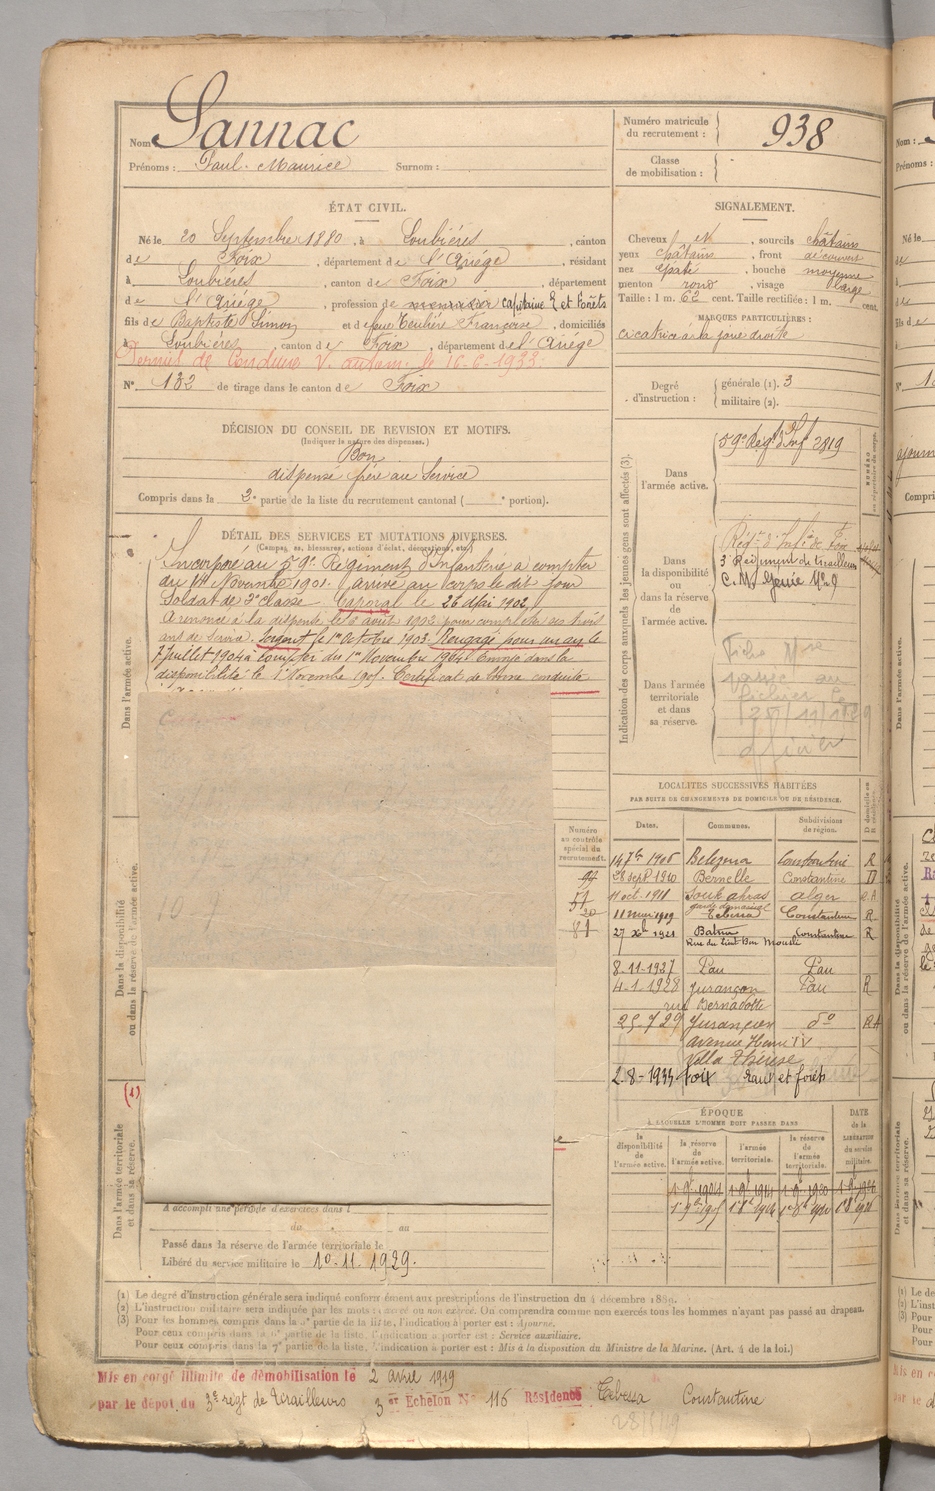 Nom Sannac
Prénoms : Paul-Maurice Surnom :
Numéro matricule du recrutement : 938
Classe de mobilisation :
ÉTAT CIVIL.
Né le 20 Septembre 1880, à Loubières, canton
de Foix, département de l'Ariège, résidant
à Loubières, canton de Foix, département
de l'Ariège, profession de capitaine E et Forêts
fils de Baptiste Simon et de Françoise, domiciliés
à Loubières, canton de Foix, département de l'Ariège
Permis de Conduire V. autom. le 16-6-1933.
N° 132 de tirage dans le canton de Foix
SIGNALEMENT.
Cheveux et , sourcils châtains
yeux châtains, front découvert
nez épaté, bouche moyenne
menton rond, visage large
Taille : 1 m. 62 cent. Taille rectifiée : 1 m. cent.
MARQUES PARTICULIÈRES :
cicatrice à la joue droite
Degré d'instruction : générale (1). 3
militaire (2).
DÉCISION DU CONSEIL DE REVISION ET MOTIFS.
(Indiquer la nature des dispenses.)
Bon
dispensé frère au Service
Compris dans la 2e partie de la liste du recrutement cantonal ( e portion).
DÉTAIL DES SERVICES ET MUTATIONS DIVERSES.
(Campagnes, blessures, actions d'éclat, décorations, etc.)
Incorporé au 59e Régiment d'Infanterie à compter
du Novembre 1901. Arrivé au corps le dit jour
Soldat de 2e classe. Caporal le 26 Mai 1902,
A renoncé à la dispense le 6 août 1902 pour compléter ses trois
ans de service. Sergent le 1er Octobre 1903. Rengagé pour un an le
7 juillet 1904 à compter du 1er Novembre 1904. Envoyé dans la
disponibilité le 1er Novembre 1905. Certificat de bonne conduite
Indication des corps auxquels les jeunes gens sont affectés (3).
Dans l'armée active.
59e Rég. d'Inf. 2819
Dans la disponibilité ou dans la réserve de l'armée active.
Régt d'Infie de Foix
3e Régiment de tirailleurs
C. M. Génie No 9
Dans l'armée territoriale et dans sa réserve.
Fiche Mre
passé au
fichier le
25/11/1929
officier
Dans l'armée active.
Dans la disponibilité ou dans la réserve de l'armée active.
(1)
Dans l'armée territoriale et dans sa réserve.
Numéro au contrôle spécial du recrutement.
51
20
81
LOCALITÉS SUCCESSIVES HABITÉES
PAR SUITE DE CHANGEMENTS DE DOMICILE OU DE RÉSIDENCE.
Dates. Communes. Subdivisions de région. D domicile ou R résidence.
14 7bre 1906 Belezma Constantine R
28 sept 1910 Bernelle Constantine D
11 oct. 1911 Souk ahras alger R A
11 mai 1919 Tebessa Constantine R
27 Xbre 1921 Batna Constantine R
8-11-1927 Pau Pau
4-1-1928 Jurançon Pau R
rue Bernadotte
25-7 29 Jurançon do R A
avenue Henri IV
Villa Thérèse
2-8-1933 Foix Eaux et forêts
ÉPOQUE
À LAQUELLE L'HOMME DOIT PASSER DANS
la disponibilité de l'armée active.
la réserve de l'armée active.
l'armée territoriale.
la réserve de l'armée territoriale.
DATE de la LIBÉRATION du service militaire.
A accompli une période d'exercices dans l
du au
Passé dans la réserve de l'armée territoriale le
Libéré du service militaire le 10-11-1929.
(1) Le degré d'instruction générale sera indiqué conformément aux prescriptions de l'instruction du 4 décembre 1889.
(2) L'instruction militaire sera indiquée par les mots : exercé ou non exercé. On comprendra comme non exercés tous les hommes n'ayant pas passé au drapeau.
(3) Pour les hommes compris dans la 3e partie de la liste, l'indication à porter est : Ajourné.
Pour ceux compris dans la 6e partie de la liste, l'indication a porter est : Service auxiliaire.
Pour ceux compris dans la 7e partie de la liste, l'indication a porter est : Mis à la disposition du Ministre de la Marine. (Art. 4 de la loi.)
Mis en congé illimité de démobilisation le 2 avril 1919
par le dépôt du 3e regt de Tirailleurs 3e Echelon No 116 Résidence Tebessa Constantine